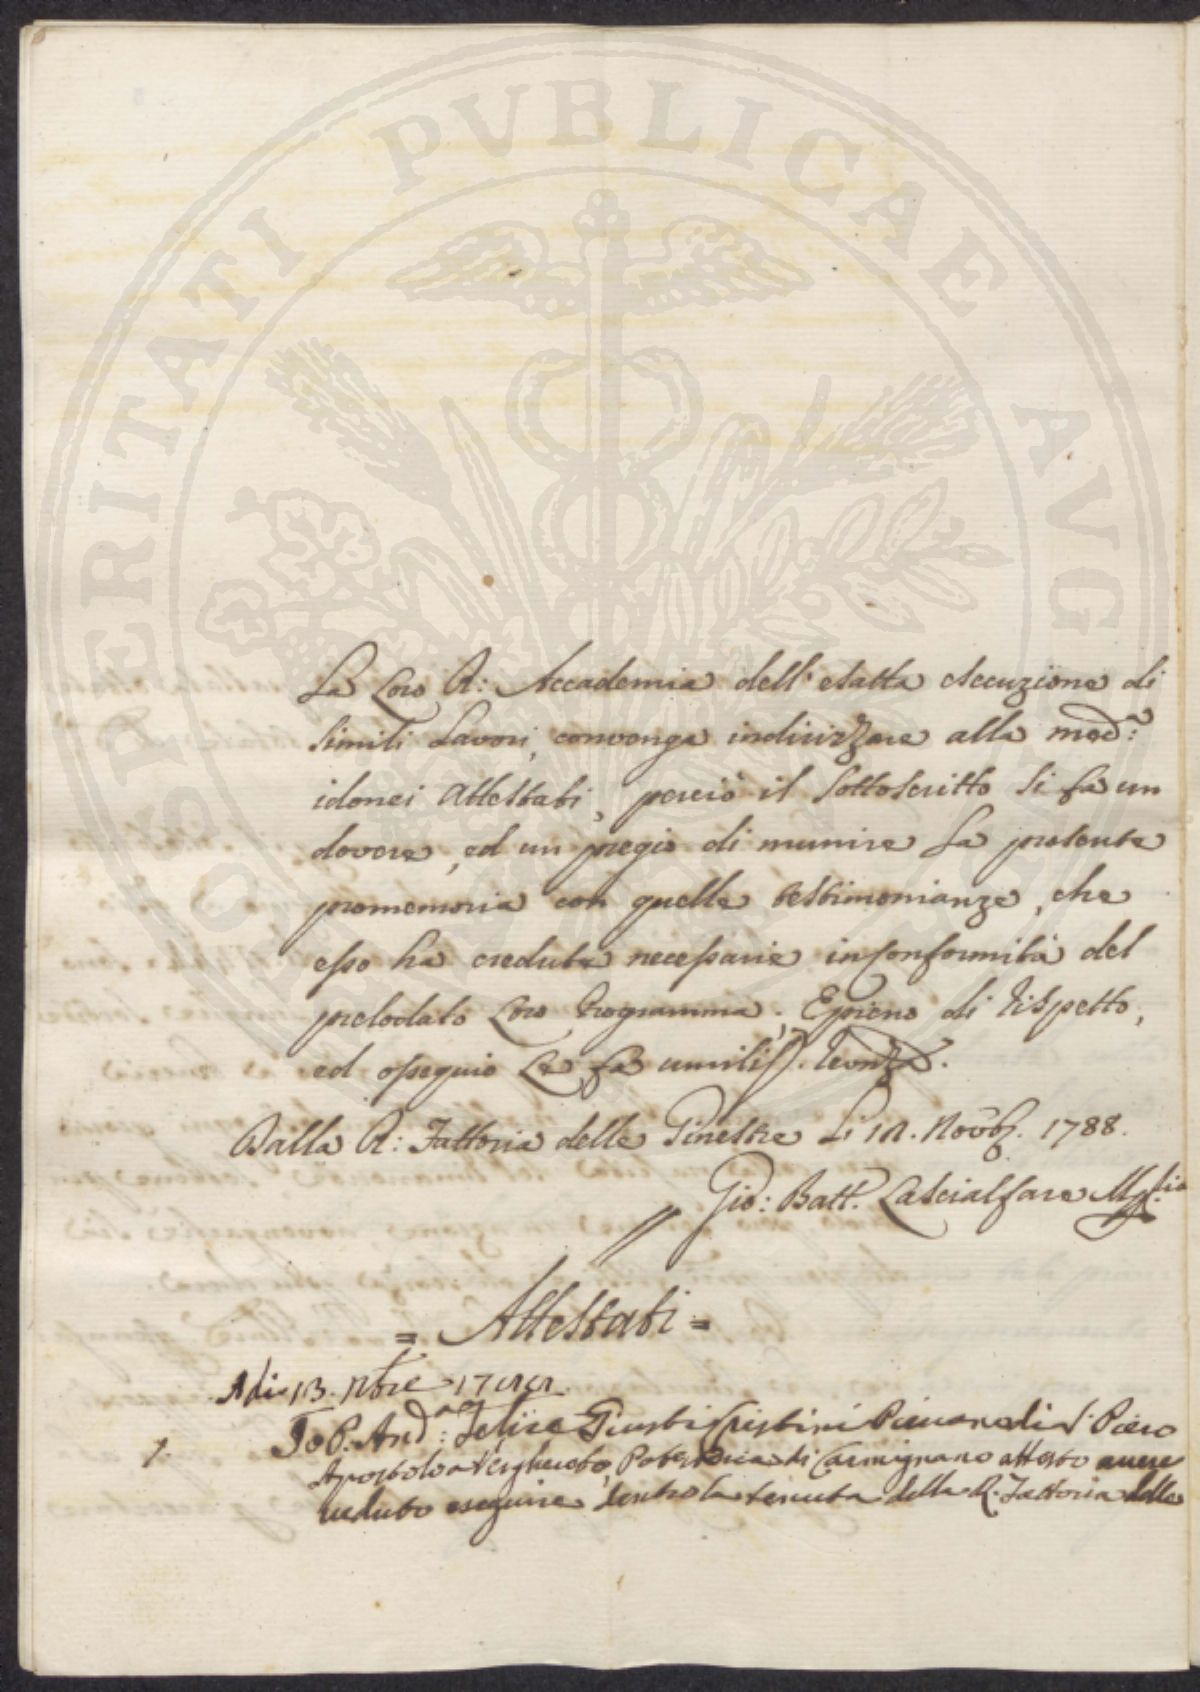 PROSPERITATI PUBLICAE AUG
La Loro R: Accademia dell' esatta esecuzione di
simili Lavori, convenga indirizzare alla med:ª
idonei attestati, perciò il sottoscritto si fa un
dovere, ed un pregio di munire la presente
promemoria con quelle testimonianze, che
esso ha credute necessarie in conformità del
prelodato Loro Programma; E pieno di rispetto,
ed ossequio Le fa umiliss.
Dalla R: Fattoria delle Ginestre Li Novb. 1788.
Gio: Batt. Lascialfare
= Attestati =
Adi 13. Nbre 1788
1. Io P. And:ª Felice Giusti Cristini Pievano di S. Piero
Apostolo a Verghereto, Potesteria di Carmignano attesto avere
veduto eseguire dentro la tenuta della R. Fattoria delle